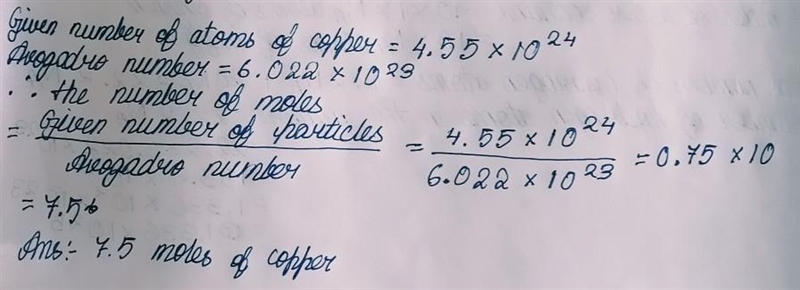 Given number of atoms of copper = 4.55 × 10^24
Avogadro number = 6.022 × 10^23
∴ the number of moles
= Given number of particles / Avogadro number = 4.55 × 10^24 / 6.022 × 10^23 = 0.75 × 10
= 7.5
Ans:- 7.5 moles of copper